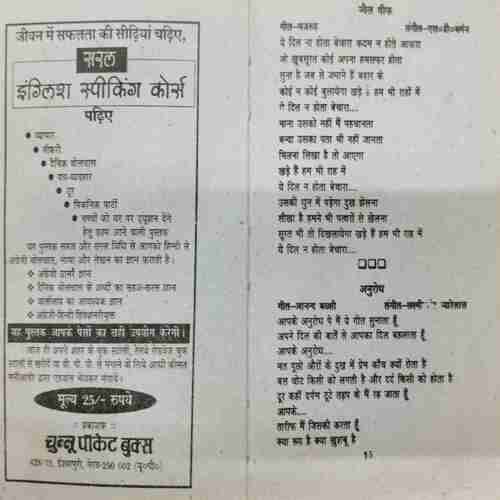 जीवन में सफलता की सीढ़ियां चढ़िए,
सरल
इंग्लिश स्पीकिंग कोर्स
पढ़िए
व्यापार
नौकरी
दैनिक बोलचाल
पत्र-व्यवहार
टूर
पिकनिक पार्टी
बच्चों को घर पर ट्यूशन देने
हेतु काम आने वाली पुस्तक
यह पुस्तक सहज और सरल विधि से आपको हिन्दी से
अंग्रेजी बोलचाल, भाषा और लेखन का ज्ञान कराती है।
अंग्रेजी ग्रामर ज्ञान
दैनिक बोलचाल के शब्दों का सहज-सरल ज्ञान
वार्तालाप का आवश्यक ज्ञान
अंग्रेजी-हिन्दी डिक्शनरीयुक्त
यह पुस्तक आपके पैसों का सही उपयोग करेगी।
आज ही अपने शहर के बुक स्टालों, रेलवे रोडवेज बुक
स्टालों से खरीदें या वी. पी. पी. से मंगाने के लिये आधी कीमत
मनीआर्डर द्वारा एडवांस भेजकर मंगायें।
मूल्य 25/- रुपये
प्रकाशक
चुन्नू पॉकेट बुक्स
ईश्वरपुरी, मेरठ-250 002 (यू०पी०)
जैल थीफ
गीत-मजरुह संगीत-एस०डी०बर्मन
ये दिल ना होता बेचारा कदम न होते आवारा
जो खूबसूरत कोई अपना हमसफर होता
सुना है जब से जमाने हैं बहार के
कोई न कोई बुलायेगा खड़े हम भी राहों में
ये दिल न होता बेचारा...
माना उसको नहीं मैं पहचानता
बन्दा उसका पता भी नहीं जानता
मिलना लिखा है तो आएगा
खड़े हैं हम भी राह में
ये दिल न होता बेचारा...
उसकी धुन में पड़ेगा दुख झेलना
सीखा है हमने भी पत्थरों से खेलना
सूरत भी तो दिखलायेगा खड़े हैं हम भी राह में
ये दिल न होता बेचारा...
अनुरोध
गीत-आनन्द बख्शी संगीत-लक्ष्मी प्यारेलाल
आपके अनुरोध पे मैं ये गीत सुनाता हूँ
अपने दिल की बातें से आपका दिल बहलाता हूँ
आपके अनुरोध...
मत पूछो औरों के दुख में प्रेम काँच क्यों रोता है
बस चोट किसी को लगती है और दर्द किसी को होता है
दूर कहीं दर्पण टूटे तड़प के मैं रह जाता हूँ
आपके....
तारीफ मैं जिसकी करता हूँ
क्या रूप है क्या खुशबू है
15